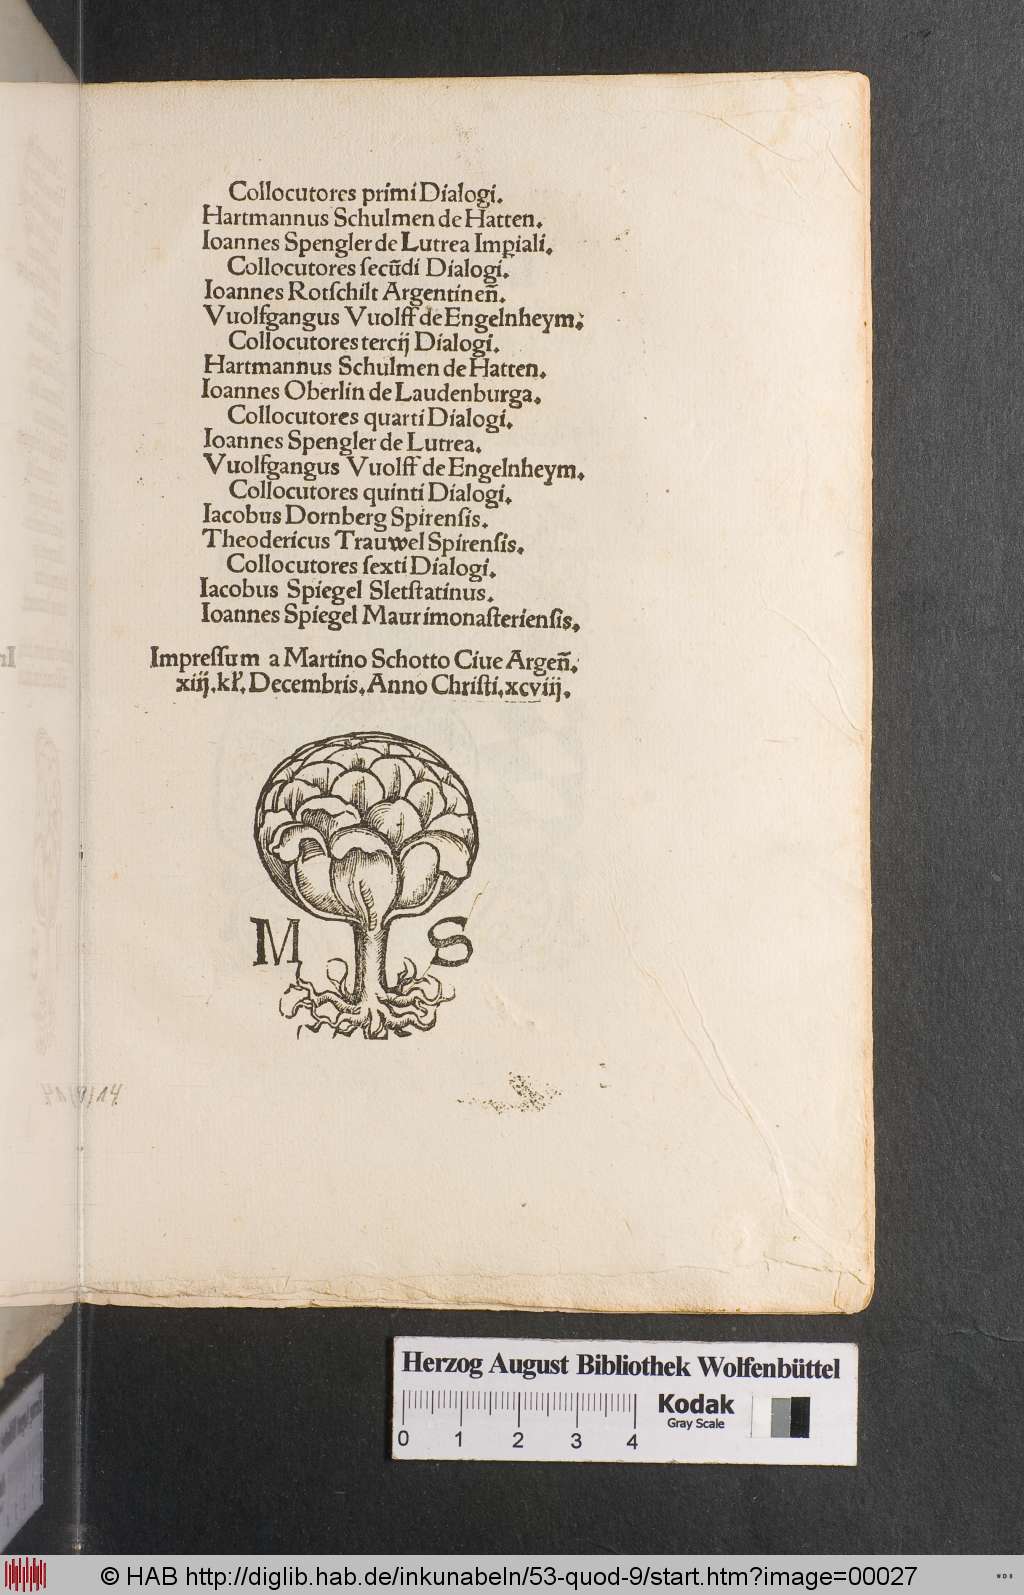 Collocutores primi Dialogi.
Hartmannus Schulmen de Hatten.
Ioannes Spengler de Lutrea Imꝑiali.
Collocutores ſecũdi Dialogi.
Ioannes Rotſchilt Argentineñ.
Vuolfgangus Vuolff de Engelnheym.
Collocutores tercij Dialogi.
Hartmannus Schulmen de Hatten.
Ioannes Oberlin de Laudenburga.
Collocutores quarti Dialogi.
Ioannes Spengler de Lutrea.
Vuolfgangus Vuolff de Engelnheym.
Collocutores quinti Dialogi.
Iacobus Dornberg Spirenſis.
Theodericus Trauwel Spirenſis.
Collocutores ſexti Dialogi.
Iacobus Spiegel Sletſtatinus.
Ioannes Spiegel Maurimonaſterienſis.
Impreſſum a Martino Schotto Ciue Argeñ.
xiij. kł. Decembris. Anno Chriſti. xcviij.
M S
Herzog August Bibliothek Wolfenbüttel
Kodak
Gray Scale
0 1 2 3 4
© HAB http://diglib.hab.de/inkunabeln/53-quod-9/start.htm?image=00027